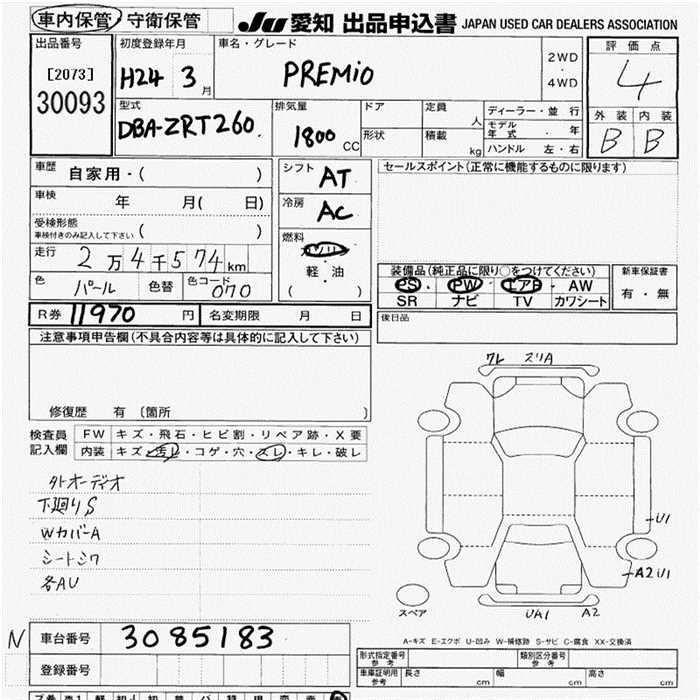 車内保管・守衛保管 JU 愛知 出品申込書 JAPAN USED CAR DEALERS ASSOCIATION
出品番号 初度登録年月 車名・グレード 2WD・4WD 評価点
[2073] H24 3月 PREMiO 4
30093 外装 内装
B B
型式 排気量 ドア 定員 人 ディーラー・並行
DBA-ZRT260. 1800CC 形状 積載 kg モデル年式・年
ハンドル 左・右
車歴 自家用・( ) シフト AT セールスポイント(正常に機能するものに限ります)
車検 年 月( 日) 冷房 AC
受検形態
車検付きのみ記入して下さい ( ) 燃料 ガソリン・軽・油
( )
走行 2万4千574km 装備品(純正品に限り○をつけてください) 新車保証書
色 パール 色替 色コード 070 PS・PW・エアB・AW 有・無
SR ナビ TV カワシート
R券 11970円 名変期限 月 日 後日品
注意事項申告欄(不具合内容等は具体的に記入して下さい)
修復歴 有 〔箇所 〕
検査員記入欄 FW キズ・飛石・ヒビ割・リペア跡・X要
内装 キズ・汚レ・コゲ・穴・スレ・キレ・破レ
外オーディオ
下廻りS
WカバーA
シートシワ
各AU
ワレ スリA
U1
A2 U1
スペア UA1 A2
A-キズ E-エクボ U-凹み W-補修跡 S-サビ C-腐食 XX-交換済
N 車台番号 3085183
登録番号
形式指定番号 参考 類別区分番号 参考
車庫証明用 参考 長さ cm 幅 cm 高さ cm